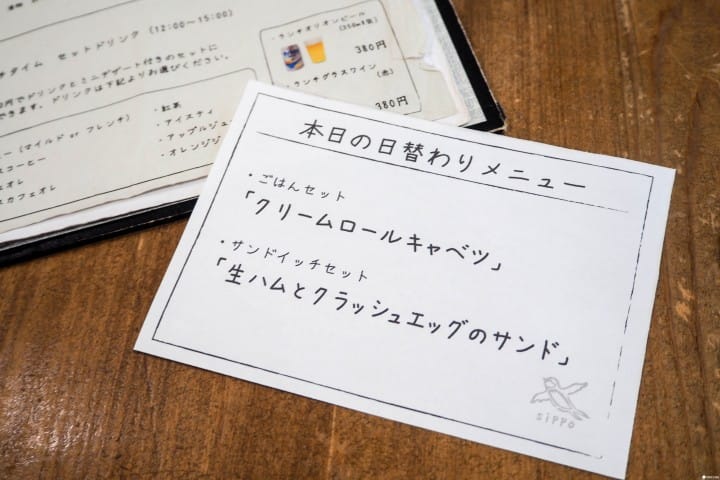 タイム セットドリンク (12:00〜15:00)
円でドリンクとミニデザート付きのセットに
できます。ドリンクは下記よりお選びください。
・ランチオリオンビール
(350ml缶)
380円
・ランチグラスワイン
(赤)
380円
(マイルド or フレンチ)
コーヒー
カフェオレ
・紅茶
・アイスティ
・アップルジュ
・オレンジジ
本日の日替わりメニュー
・ごはんセット
「クリームロールキャベツ」
・サンドイッチセット
「生ハムとクラッシュエッグのサンド」
sippo